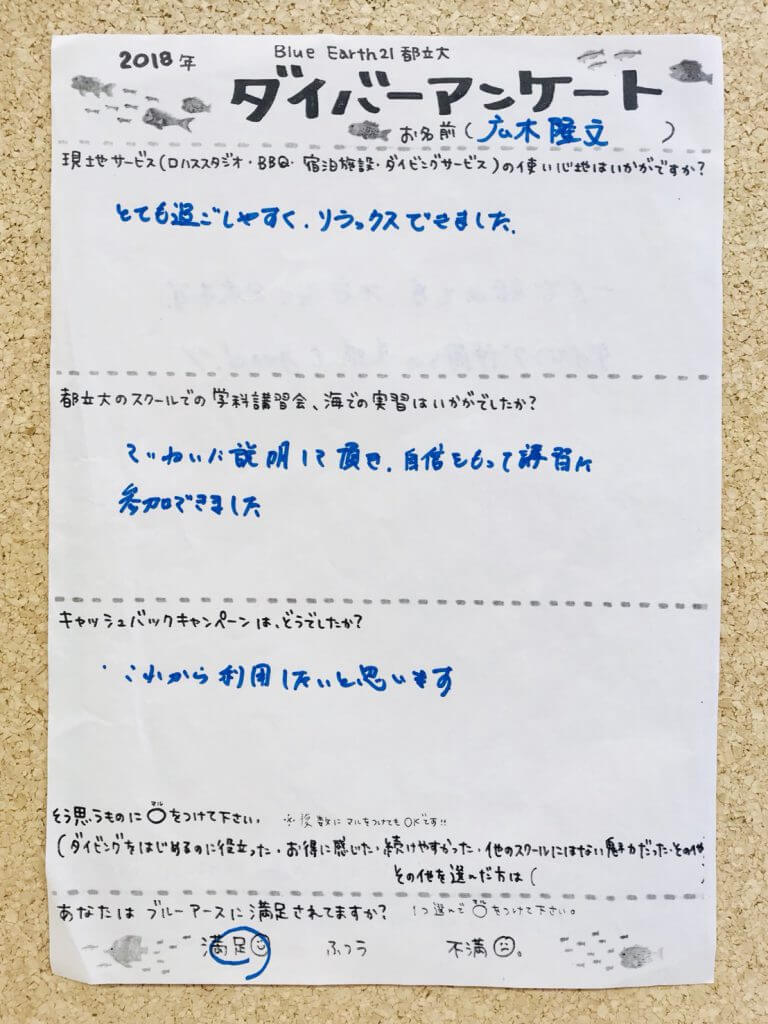 2018年
Blue Earth21都立大
ダイバーアンケート
お名前(広木隆文)
現地サービス(ロハススタジオ・BBQ・宿泊施設・ダイビングサービス)の使い心地はいかがですか?
とても過ごしやすく、リラックスできました。
都立大のスクールでの学科講習会、海での実習はいかがでしたか?
ていねいに説明して頂き、自信をもって講習に
参加できました
キャッシュバックキャンペーンは、どうでしたか?
これから利用したいと思います
そう思うものに○をつけて下さい。 ※複数にマルをつけてもOKです!!
マル
(ダイビングをはじめるのに役立った・お得に感じた・続けやすかった・他のスクールにはない魅力だった・その他
その他を選んだ方は(
あなたはブルーアースに満足されてますか? 1つ選んで○をつけて下さい。
満足 ふつう 不満。